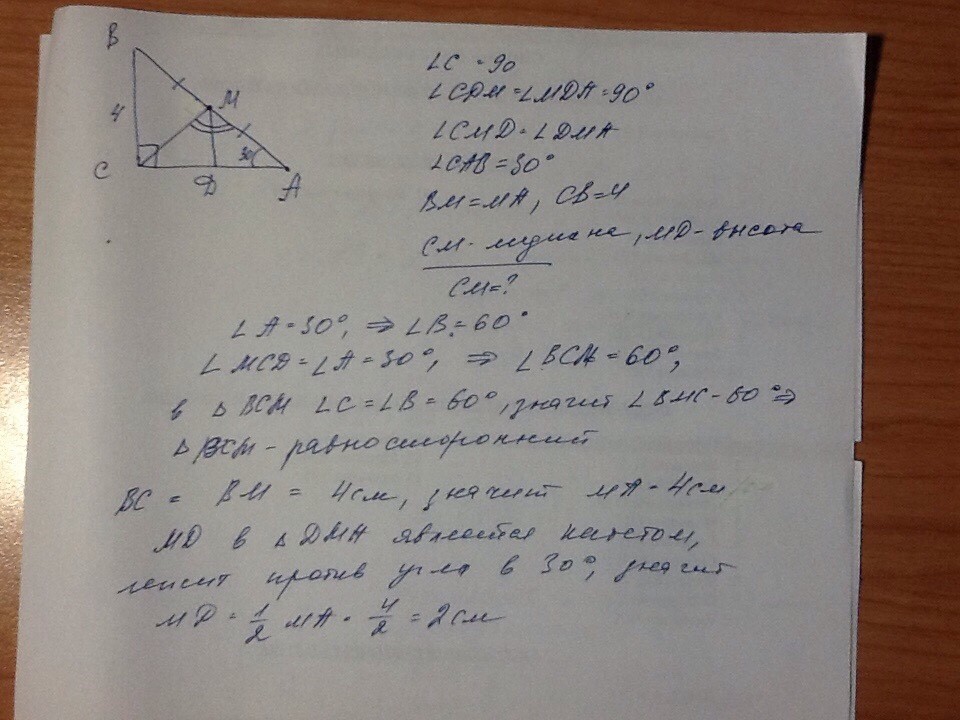 B
4
M
30
C
D
A
∠C = 90
∠CDM = ∠MDA = 90°
∠CMD = ∠DMA
∠CAB = 30°
BM = MA, CB = 4
CM - медиана, MD - высота
CM = ?
∠A = 30°, ⇒ ∠B = 60°
∠MCD = ∠A = 30°, ⇒ ∠BCM = 60°,
в △BCM ∠C = ∠B = 60°, значит ∠BMC - 60° ⇒
△BCM - равносторонний
BC = BM = 4 см, значит MA - 4 см
MD в △DMA является катетом,
лежит против угла в 30°, значит
MD = 1/2 MA · 4/2 = 2 см